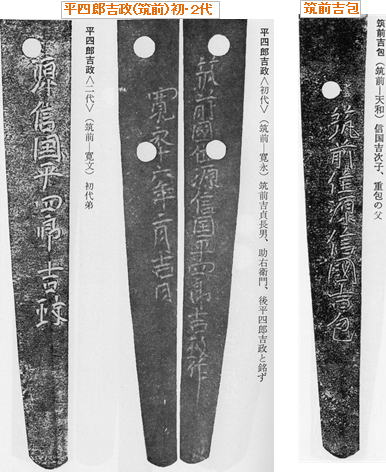 平四郎吉政(筑前)初・2代
筑前吉包
平四郎吉政〈二代〉(筑前―寛文) 初代弟
源信国平四郎吉政
平四郎吉政〈初代〉(筑前―寛永) 筑前吉貞長男、助右衛門、後平四郎吉政と銘ず
筑前國住源信国平四郎吉政作
年二月吉日
筑前吉包(筑前―天和) 信国吉次子、重包の父
筑前住源信國吉包